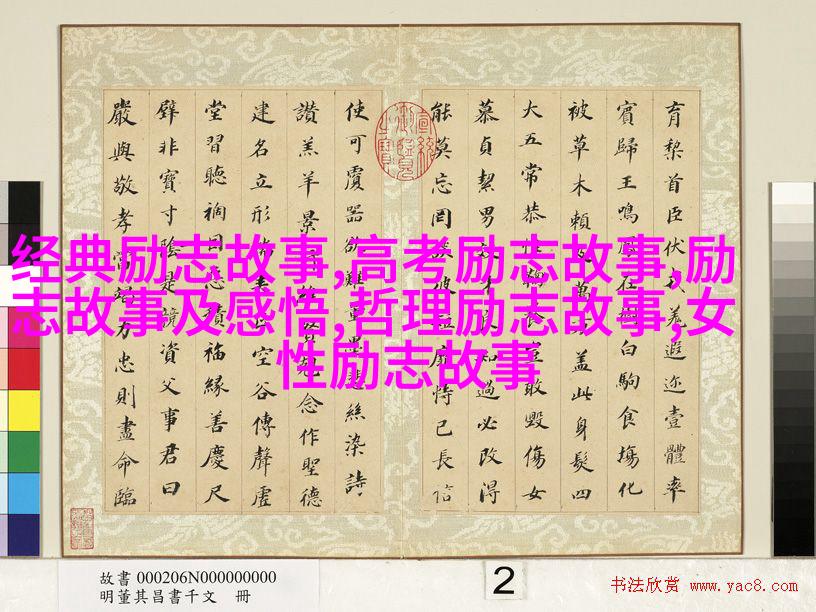 育黎首臣伏戎羌遐迩壹體率
賓歸王鳴鳳在樹白駒食場化
被草木賴及萬方蓋此身髮四
大五常恭惟鞠養豈敢毀傷女
慕貞絜男效才良知過必改得
能莫忘罔談彼短靡恃己長信
使可覆器欲難量墨悲絲染詩
讚羔羊景行維賢克念作聖德
建名立形端表正空谷傳聲虛
堂習聽禍因惡積福緣善慶尺
璧非寶寸陰是競資父事君曰
嚴與敬孝當竭力忠則盡命臨
经典励志故事,高考励志故事,励
志故事及感悟,哲理励志故事,女
性励志故事
故書 000206N000000000
明董其昌書千文 冊
2
书法欣赏 www.yac8.com